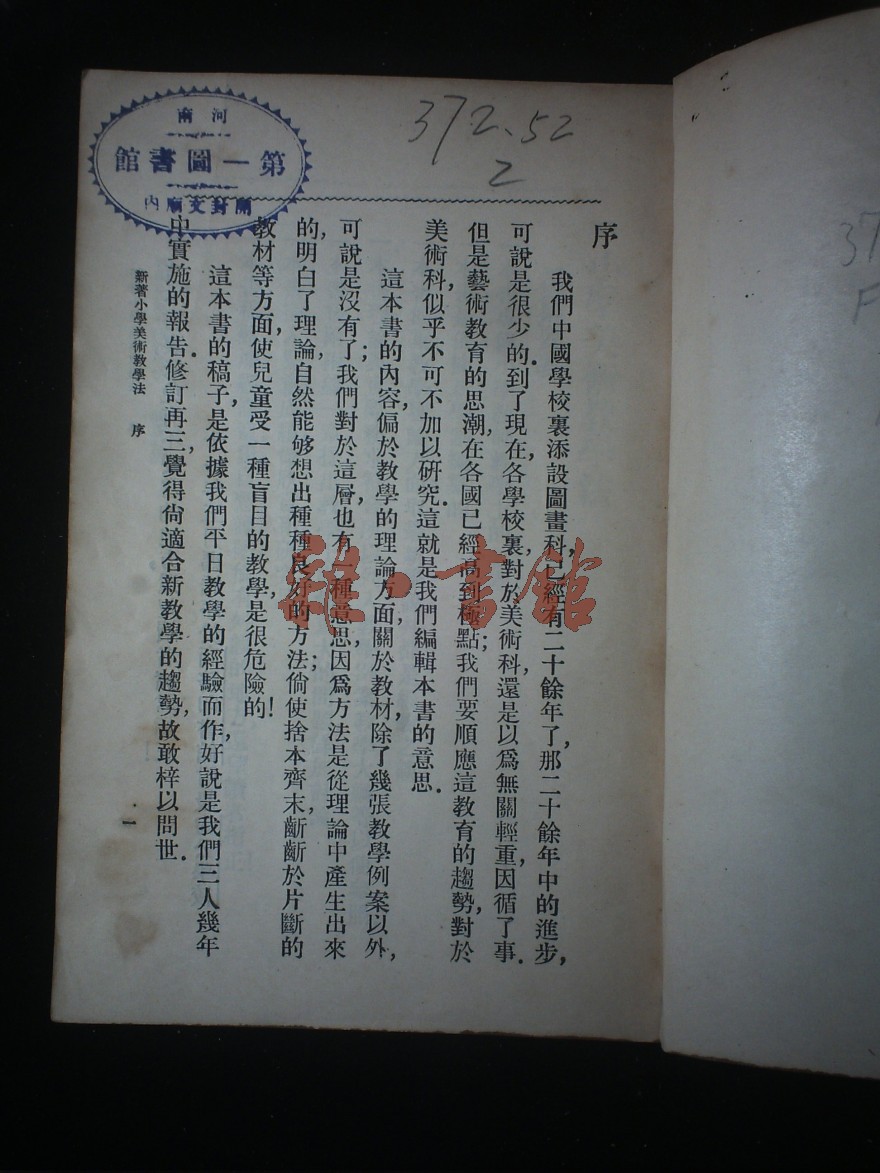 372.52
2
河南
第一圖書館
開封文廟內
序
我們中國學校裏添設圖畫科,已經有二十餘年了,那二十餘年中的進步,
可說是很少的.到了現在各學校裏,對於美術科,還是以爲無關輕重,因循了事.
但是藝術教育的思潮,在各國已經高到極點;我們要順應這教育的趨勢,對於
美術科,似乎不可不加以硏究.這就是我們編輯本書的意思.
這本書的內容,偏於教學的理論方面,關於教材,除了幾張教學例案以外,
可說是沒有了;我們對於這層,也有一種意思,因爲方法是從理論中產生出來
的,明白了理論,自然能够想出種種良好的方法;倘使捨本齊末,齗齗於片斷的
教材等方面,使兒童受一種盲目的教學,是很危險的!
這本書的稿子,是依據我們平日教學的經驗而作,好說是我們三人幾年
中實施的報告.修訂再三,覺得尙適合新教學的趨勢,故敢梓以問世.
新著小學美術教學法 序
一
雜·書館
37
F